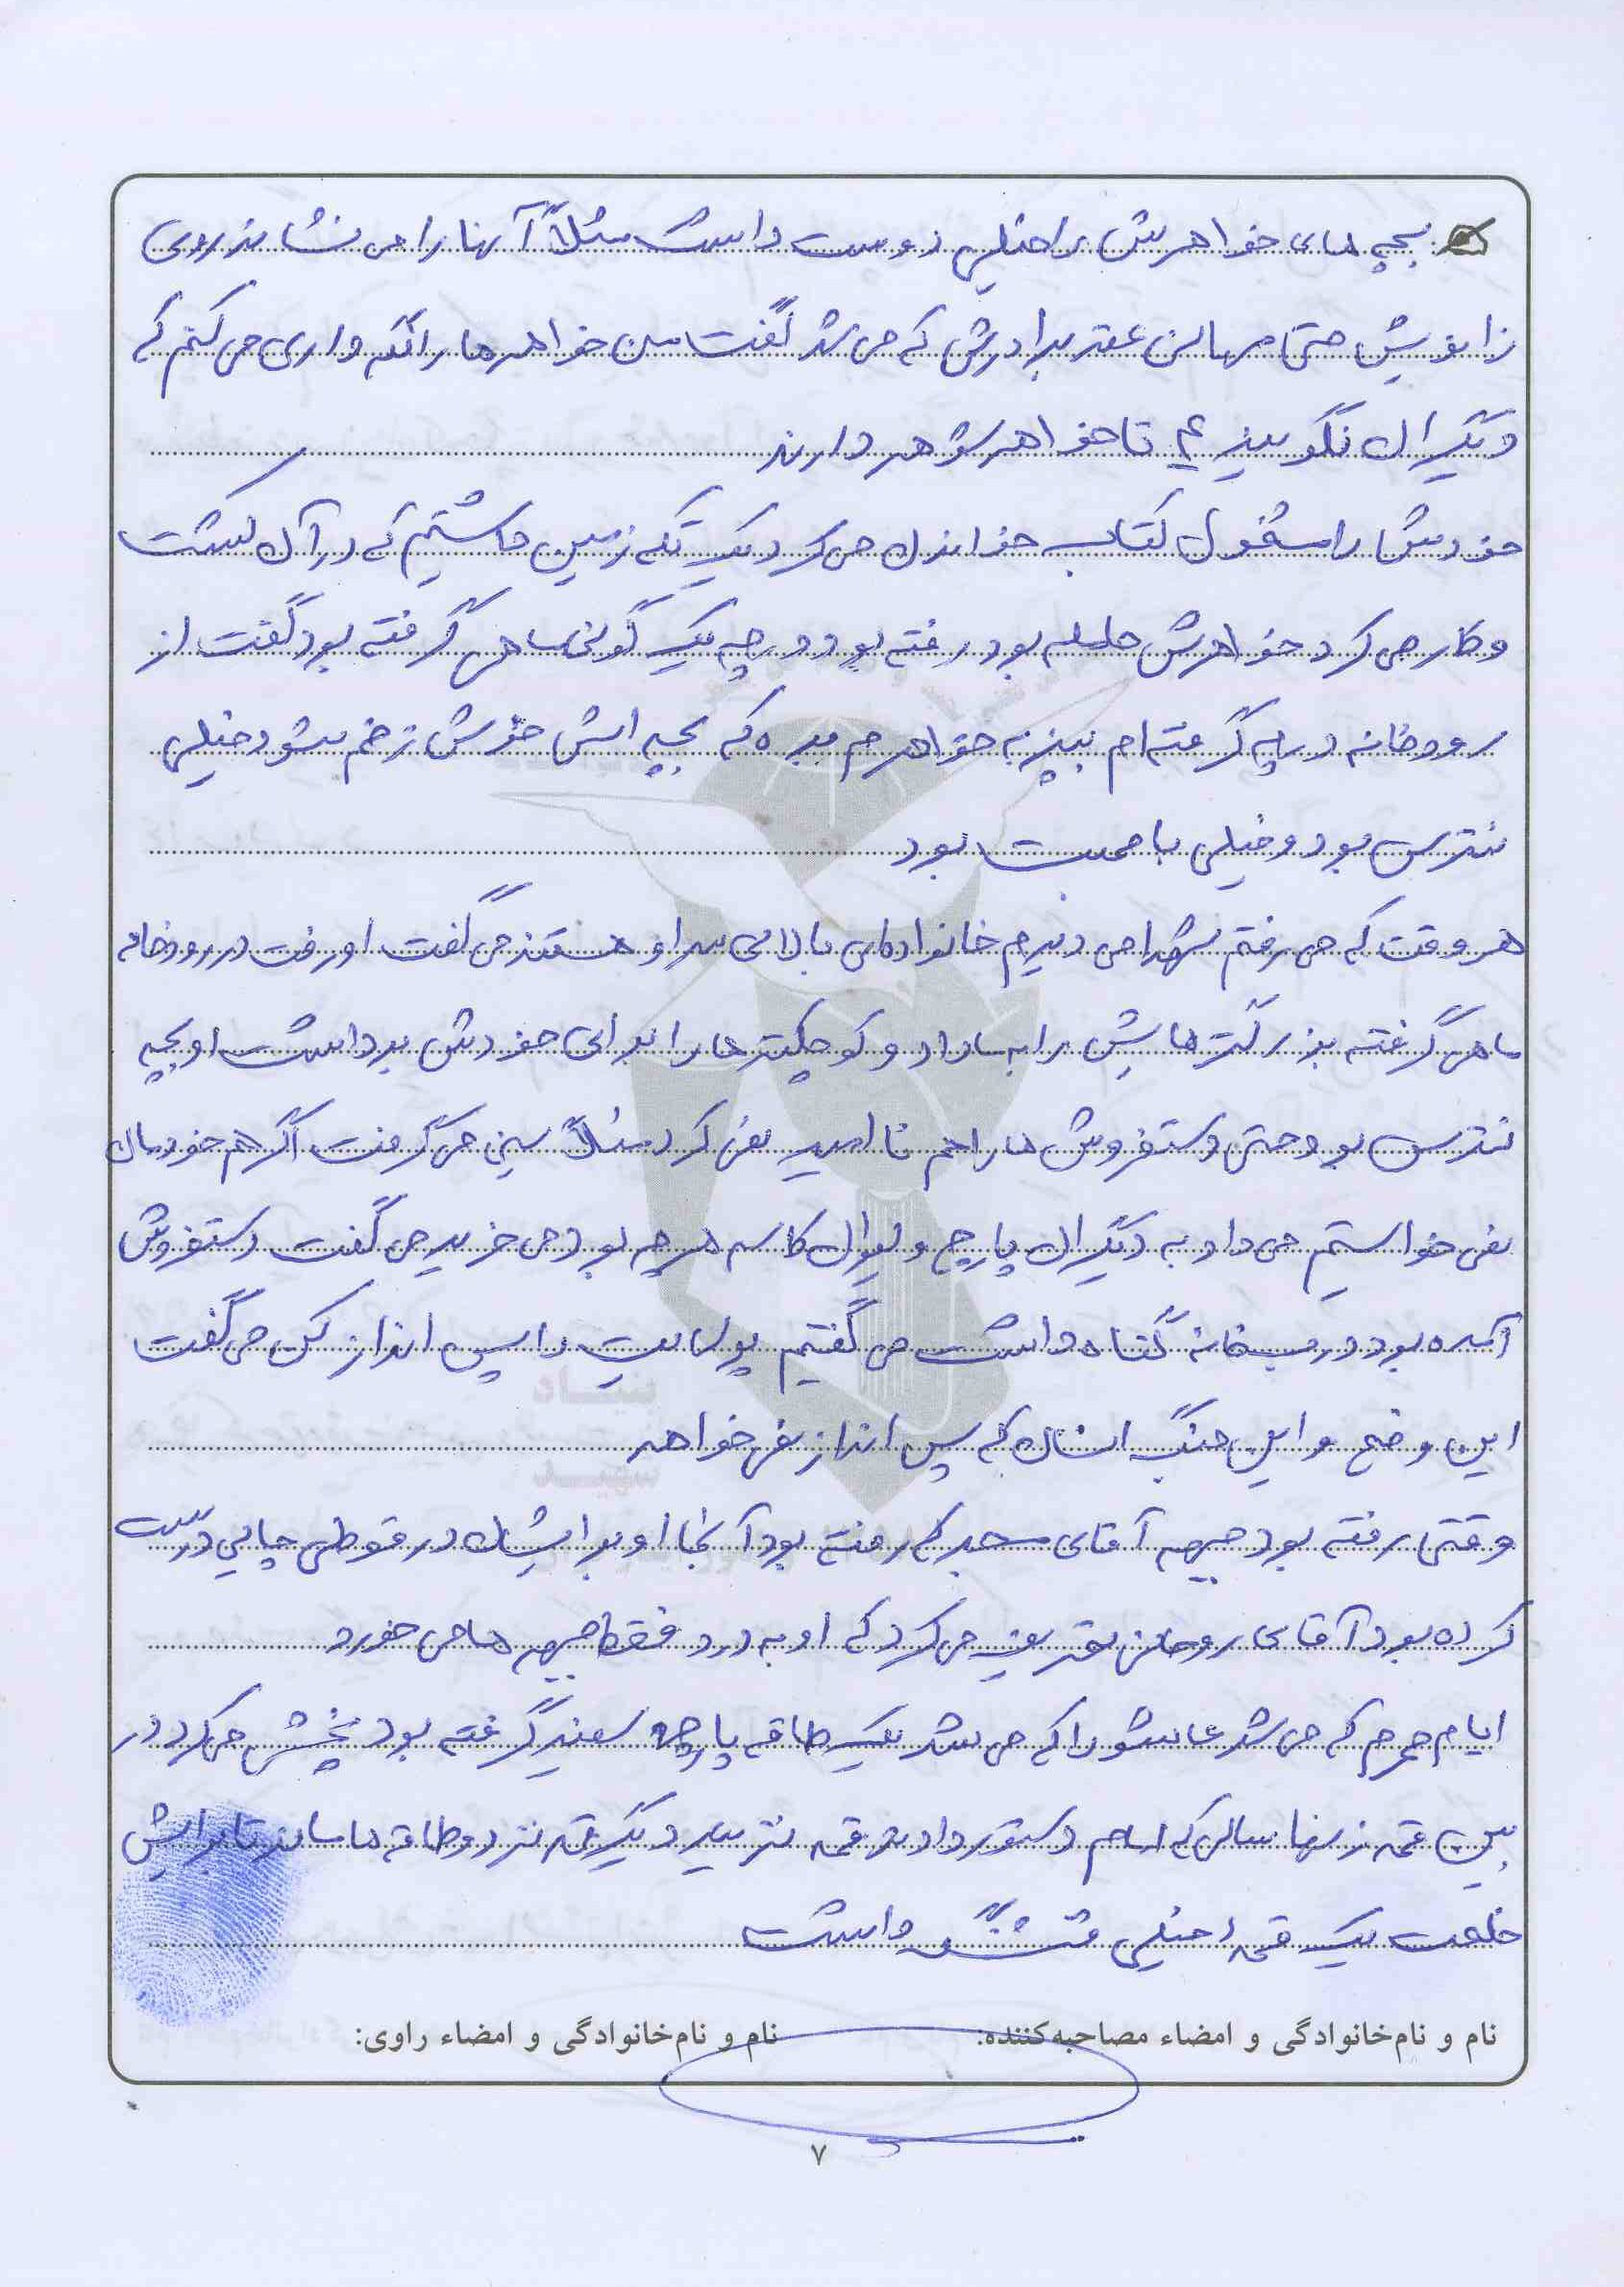 بچه های خواهرش را خیلی دوست داشت مثلاً آنها را می نشاند روی
زانویش حتی مهمانی عقد برادرش که می شد گفت من خواهرها را نگه داری می کنم که
دیگران نگویند ۴ تا خواهر شوهر دارند
خودش را مشغول کتاب خواندن می کرد یک تکه زمین داشتیم که در آن کشت
و کار می کرد خواهرش حامله بود رفته بود و درچه یک گونی ماهی گرفته بود گفت از
رودخانه درچه گرفته ام بپز به خواهرم بده که بچه اش خوش زخم بشود خیلی
نترس بود و خیلی با محبت بود
هر وقت که می رفتم شهدا می دیدم خانواده ای بالای سر او هستند می گفت او رفت در رودخانه
ماهی گرفته بزرگترهایش را به ما داد و کوچکترها را برای خودش برداشت او بچه
نترسی بود و حتی دستفروش ها را هم نا امید نمی کرد مثلاً سینی می گرفت اگر هم خودمان
نمی خواستیم می داد به دیگران پارچ و لیوان کاسه هر چه بود می خرید می گفت دستفروش
آمده بود درب خانه گناه داشت می گفتیم پولهایت را پس انداز کن می گفت
این وضع و این جنگ انسان که پس انداز نمی خواهد
وقتی رفته بود جبهه آقای که رفته بود آنجا او برایشان در قوطی چایی درست
کرده بود آقای روحانی تعریف می کرد که او به درد فقط جبهه ها می خورد
ایام محرم که می شد عاشورا که می شد یک طاقه پارچه سفید گرفته بود پخش می کرد در
بین قمه زنها سالی که امام دستور داد که قمه نزنید دیگر قمه نزد و طاقه ها ماند تا برایش
یک قمه خیلی قشنگ داشت
نام و نام‌خانوادگی و امضاء مصاحبه‌کننده:
نام و نام‌خانوادگی و امضاء راوی:
۷